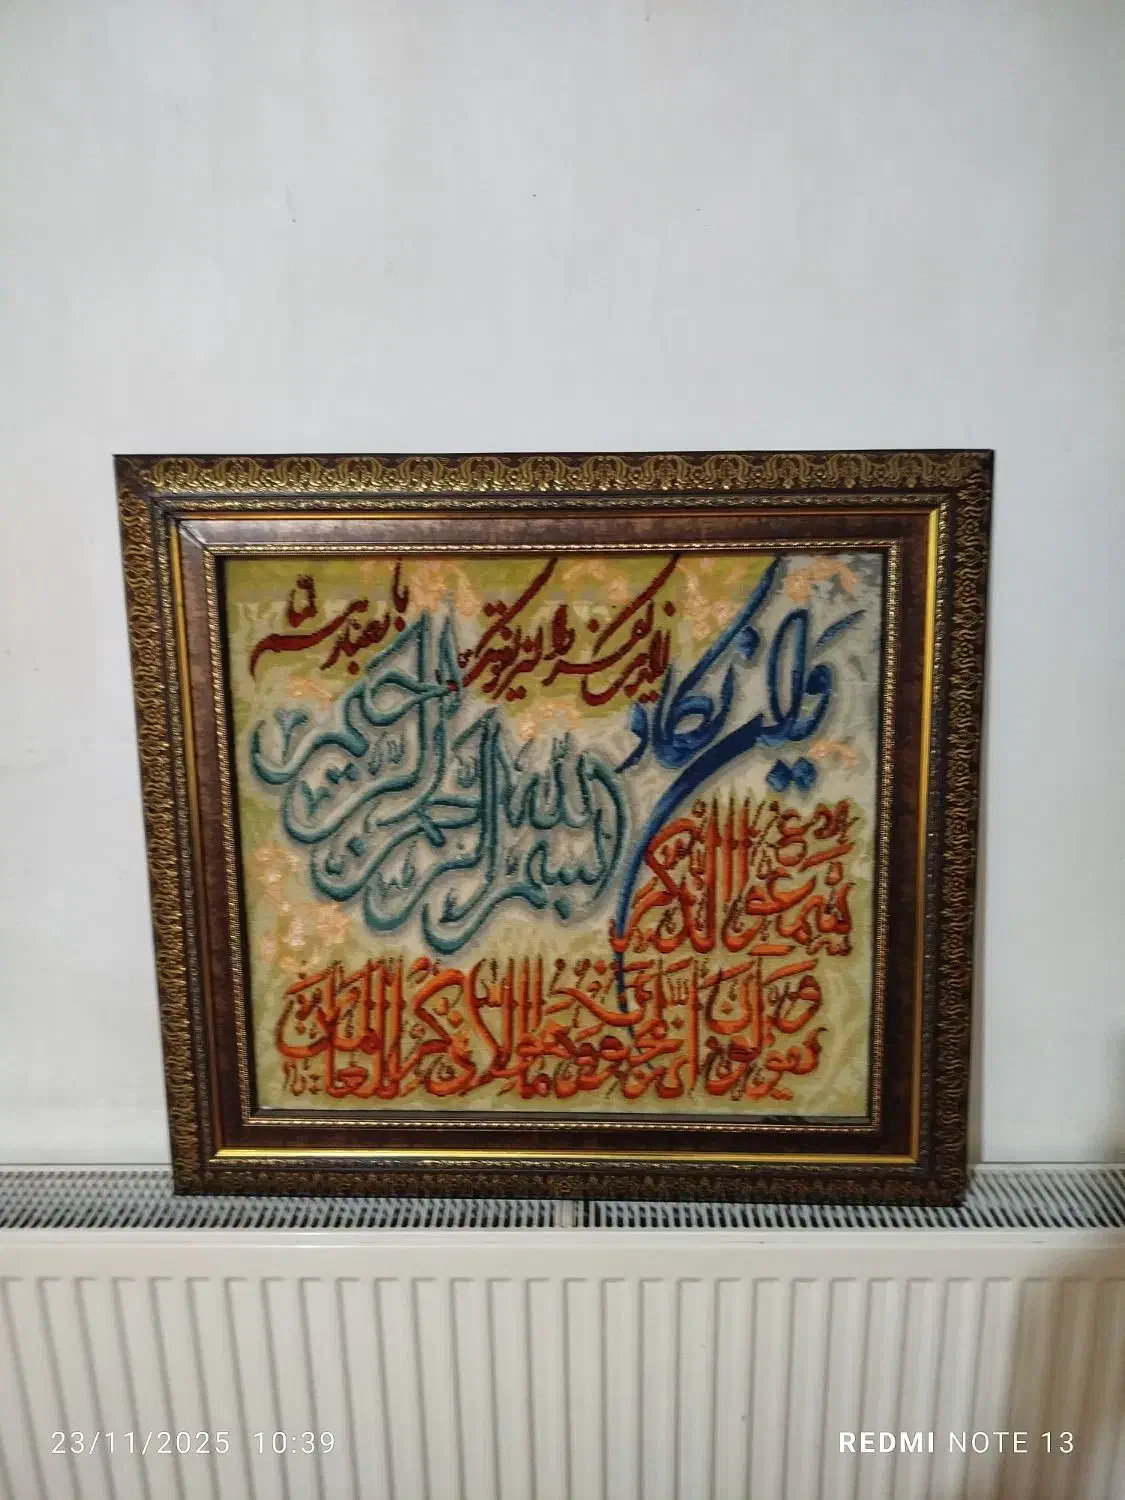 بسم الله الرحمن الرحيم
وان يكاد
الذين كفروا ليزلقونك
بابصارهم
لما
سمعوا الذكر
و يقولون انه لمجنون وما هو الا ذكر للعالمين
23/11/2025 10:39
REDMI NOTE 13